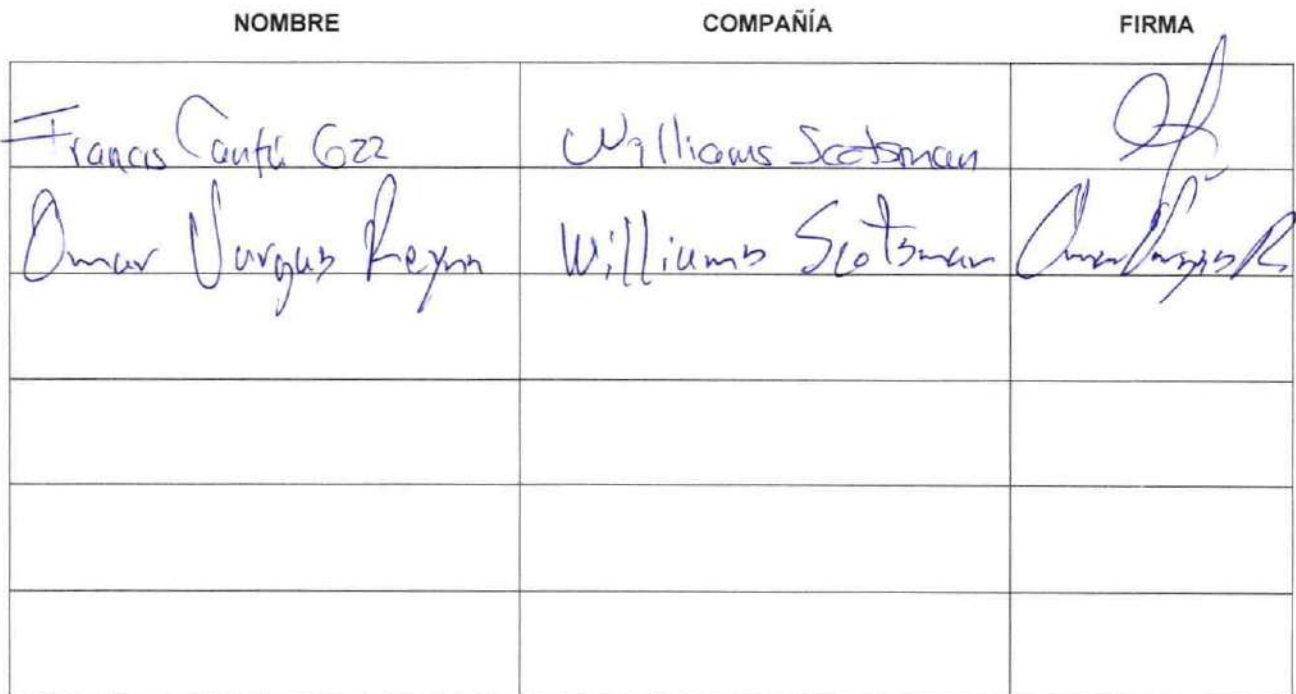 NOMBRE COMPAÑÍA FIRMA
Francis Cantú Gzz Williams Scotsman
Omar Vargas Reyna Williams Scotsman Omar Vargas R